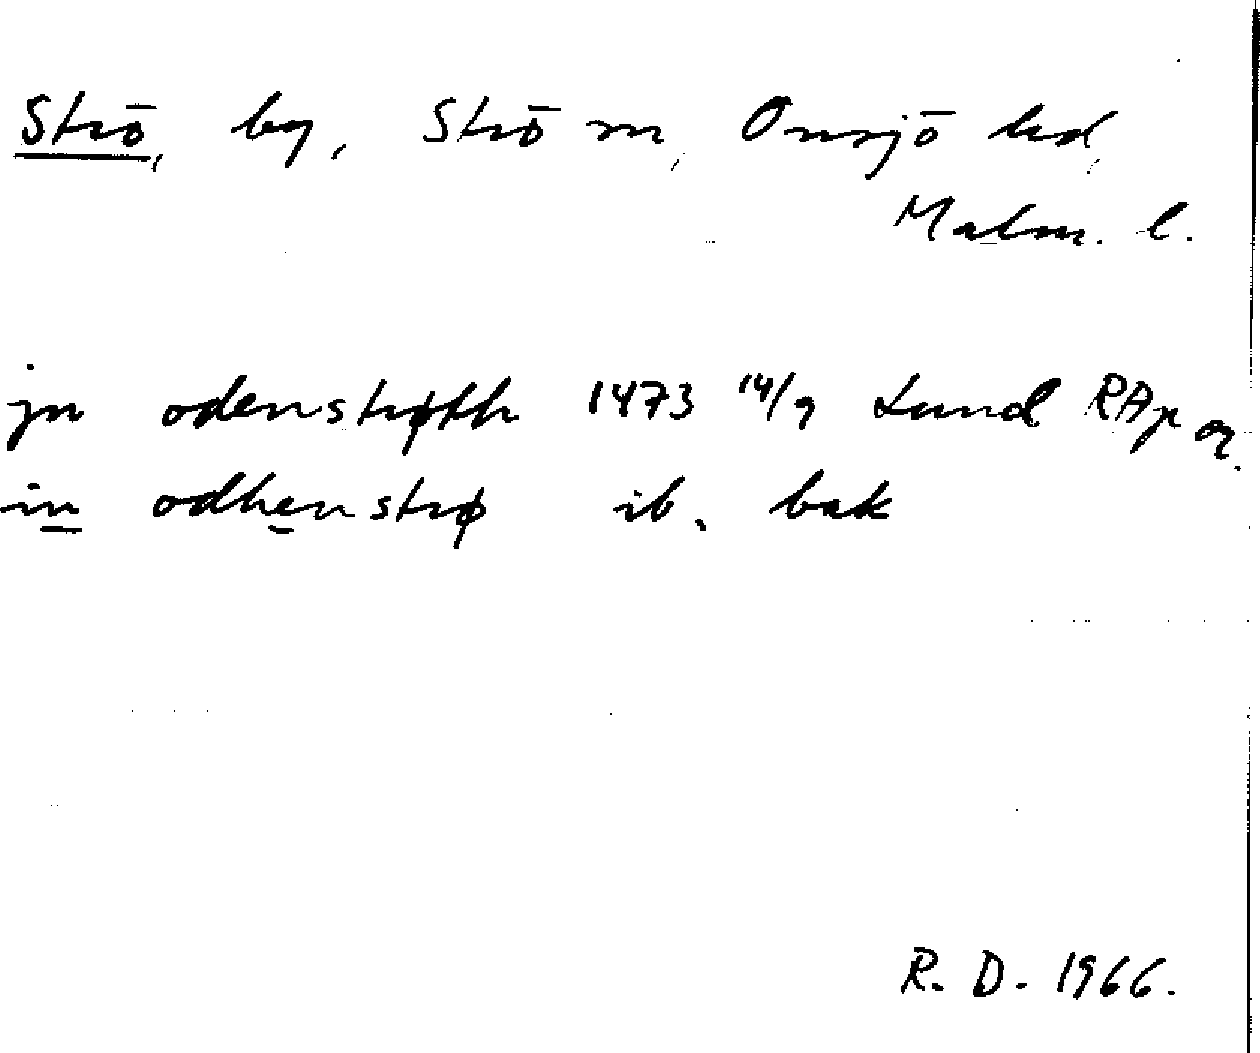 Strö, by, Strö sn, Onsjö hd,
Malm. l.
jn odenstrøth 1473 14/9 Lund RAp or.
in odhenstrø ib. bak
R. D. 1966.